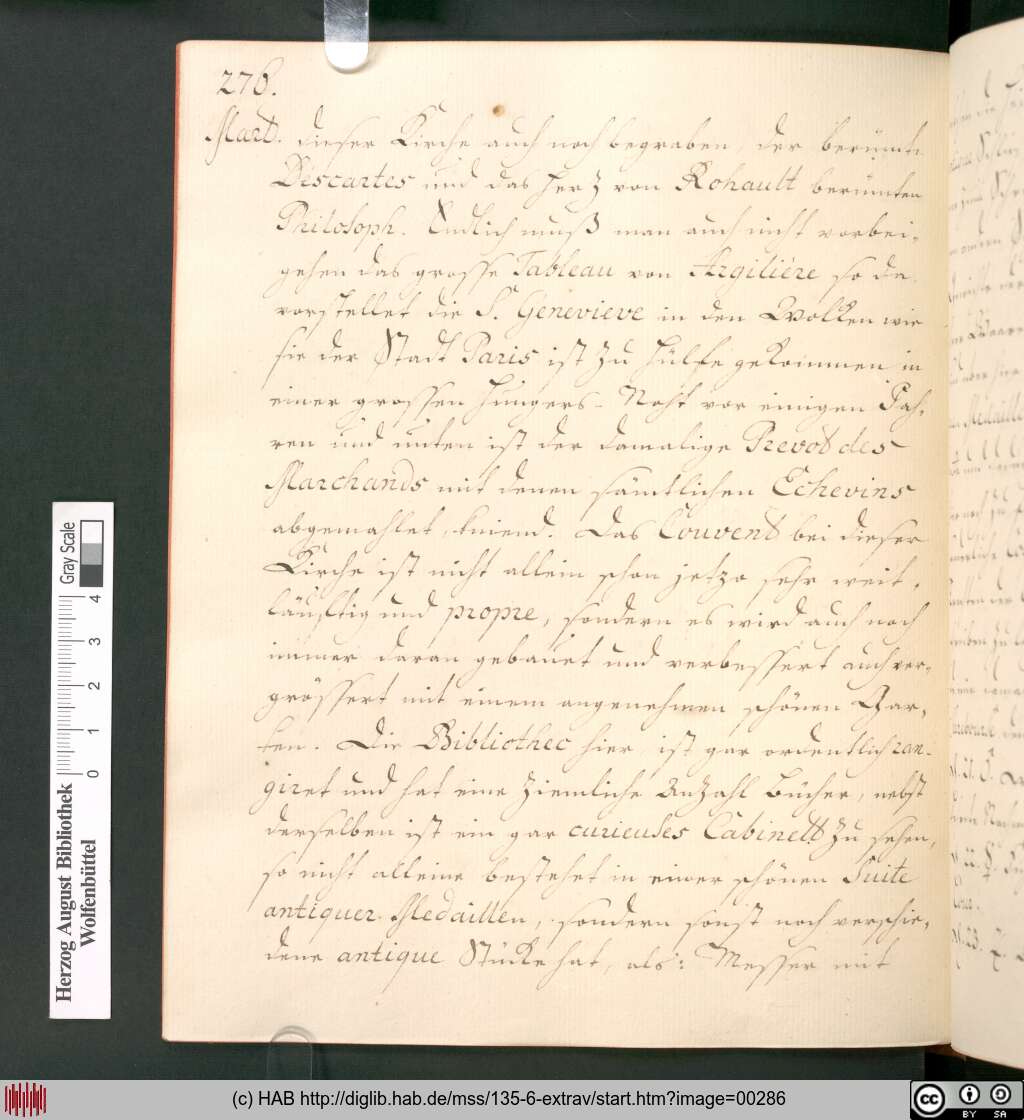 276.
Mart. dieser Kirche auch noch begraben, der berümte
Descartes und das Herz von Rohault berümten
Philosoph. Endlich muß man auch nicht vorbei-
gehen das grosse Tableau von Argiliére so da
vorstellet die S. Genevieve in den Wolken wie
sie der Stadt Paris ist zu Hülfe gekommen in
einer grossen Hungers-Noht vor einigen Jah-
ren und unten ist der damalige Prevot des
Marchands mit denen sämtlichen Echevins
abgemahlet, kniend. Das Couvent bei dieser
Kirche ist nicht allein schon jetzo sehr weit-
läuftig und propre, sondern es wird auch noch
immer daran gebauet und verbessert auch ver-
grössert mit einem angenehmen schönen Gar-
ten. Die Bibliothec hier, ist gar ordentlich ran-
giret und hat eine ziemliche Anzahl Bücher, nebst
derselben ist ein gar curieuses Cabinett zu sehen,
so nicht alleine bestehet in einer schönen Suite
antiquer Medaillen, sondern sonst noch verschie-
dene antique Stücke hat, als: Messer mit
Gray Scale
0 1 2 3 4
Herzog August Bibliothek
Wolfenbüttel
(c) HAB http://diglib.hab.de/mss/135-6-extrav/start.htm?image=00286
cc BY SA